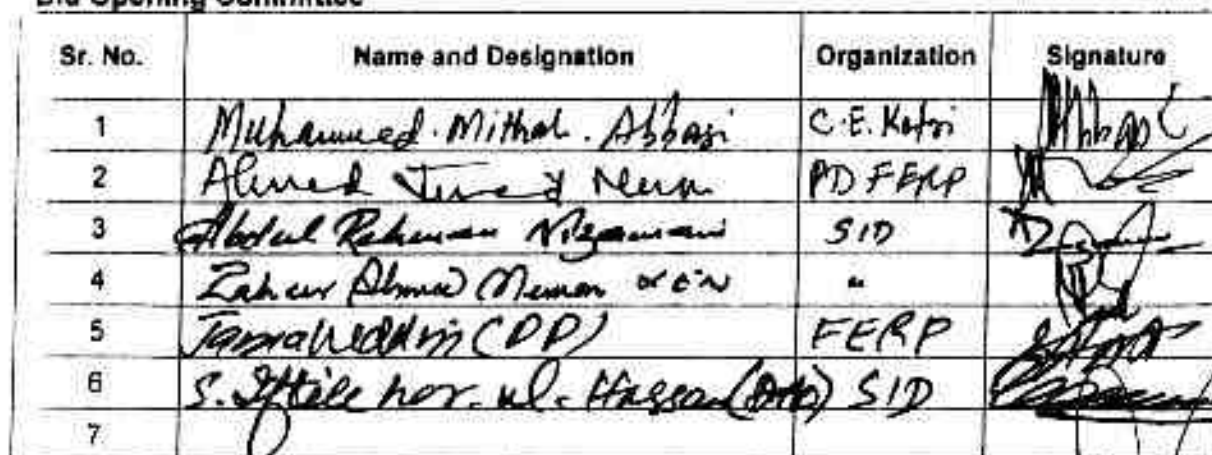 Bid Opening Committee
Sr. No. Name and Designation Organization Signature
1 Muhammed. Mithal. Abbasi C.E. Kotri
2 Ahmed Memon PD FERP
3 Abdul Rehman Nizamani SID
4 Zaheer Ahmed Memon XEN "
5 (DD) FERP
6 S. ul-Hassan SID
7